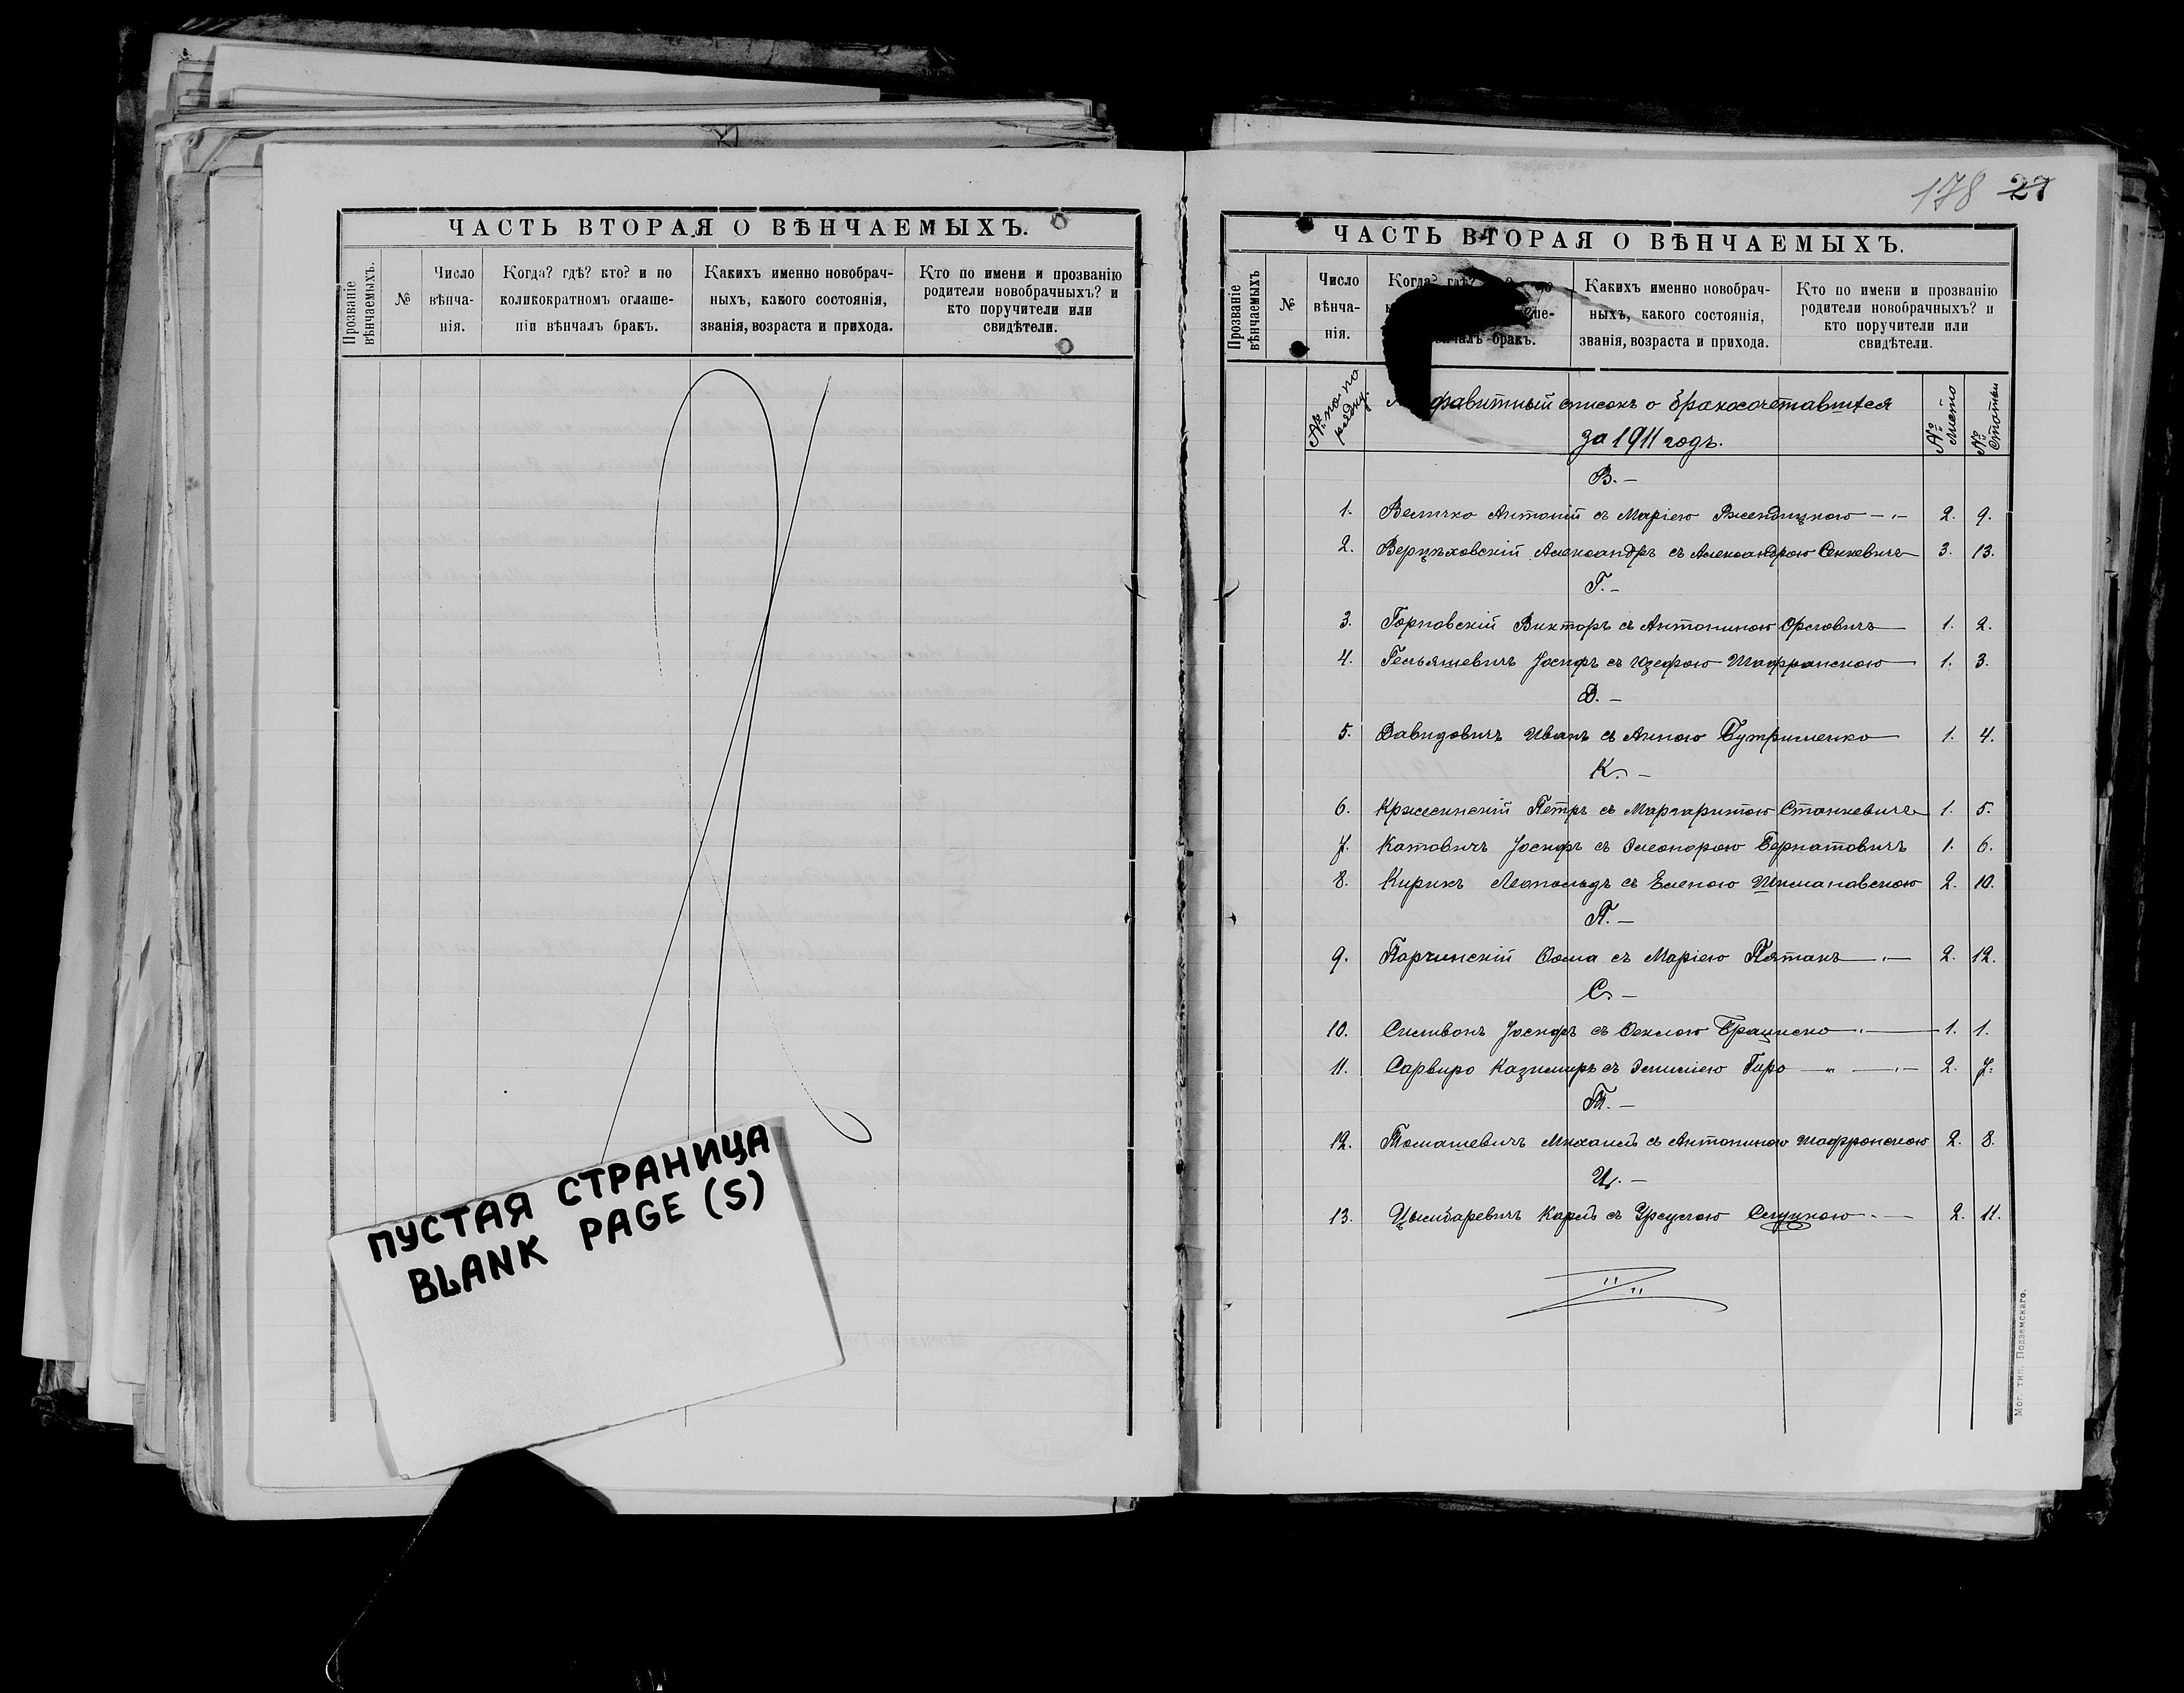 ЧАСТЬ ВТОРАЯ О ВѢНЧАЕМЫХЪ.
Прозваніе вѣнчаемыхъ.
№
Число вѣнча-нія.
Когда? гдѣ? кто? и по
коликократномъ оглаше-
ніи вѣнчалъ бракъ.
Какихъ именно новобрач-
ныхъ, какого состоянія,
званія, возраста и прихода.
Кто по имени и прозванію
родители новобрачныхъ? и
кто поручители или
свидѣтели.
ПУСТАЯ СТРАНИЦА
BLANK PAGE (S)
178 27
ЧАСТЬ ВТОРАЯ О ВѢНЧАЕМЫХЪ.
Прозваніе вѣнчаемыхъ
№
Число вѣнча-нія.
Когда? гдѣ?
бракъ.
Какихъ именно новобрач-
ныхъ, какого состоянія,
званія, возраста и прихода.
Кто по имени и прозванію
родители новобрачныхъ? и
кто поручители или
свидѣтели.
№ по порядку.
списокъ о бракосочетавшихся
за 1911 годъ.
№ листа
№ Статьи
В. –
1. Величко Антоній съ Маріею 2. 9.
2. Верцѣховскій Александръ съ Александрою Сенкевичъ 3. 13.
Г. –
3. Горновскій Викторъ съ Антониною Орловичъ 1. 2.
4. Гельяшевичъ Іосифъ съ Юзефою Шафранскою 1. 3.
Д. –
5. Давидовичъ Иванъ съ Анною Бутрименко 1. 4.
К. –
6. Кржесинскій Петръ съ Маргаритою Станкевичъ 1. 5.
7. Катовичъ Іосифъ съ Элеонорою Бернатовичъ 1. 6.
8. Кирикъ Леопольдъ съ Еленою 2. 10.
П. –
9. Парчинскій Ѳома съ Маріею Пятакъ 2. 12.
С. –
10. Силивонъ Іосифъ съ Ѳеклою 1. 1.
11. Сарвиро Казимиръ съ Эмиліею Гиро 2. 7.
Т. –
12. Томашевичъ Михаилъ съ Антониною Шафранскою 2. 8.
Ц. –
13. Цымбаревичъ Карлъ съ Урсулою 2. 11.
Мог. тип. Подземскаго.